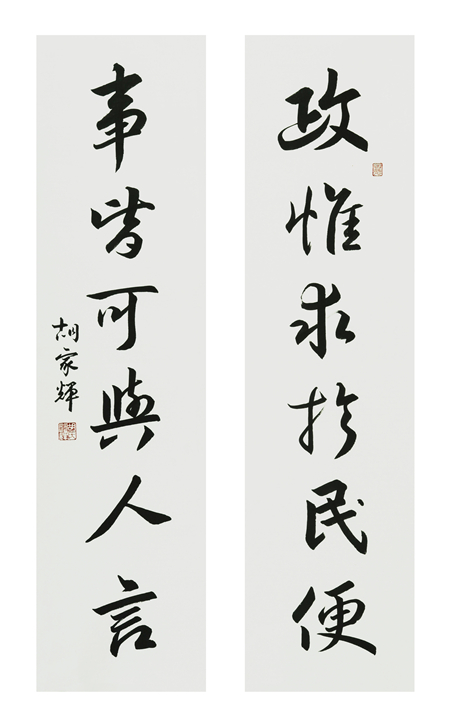 政惟求於民便
事皆可與人言
胡家輝